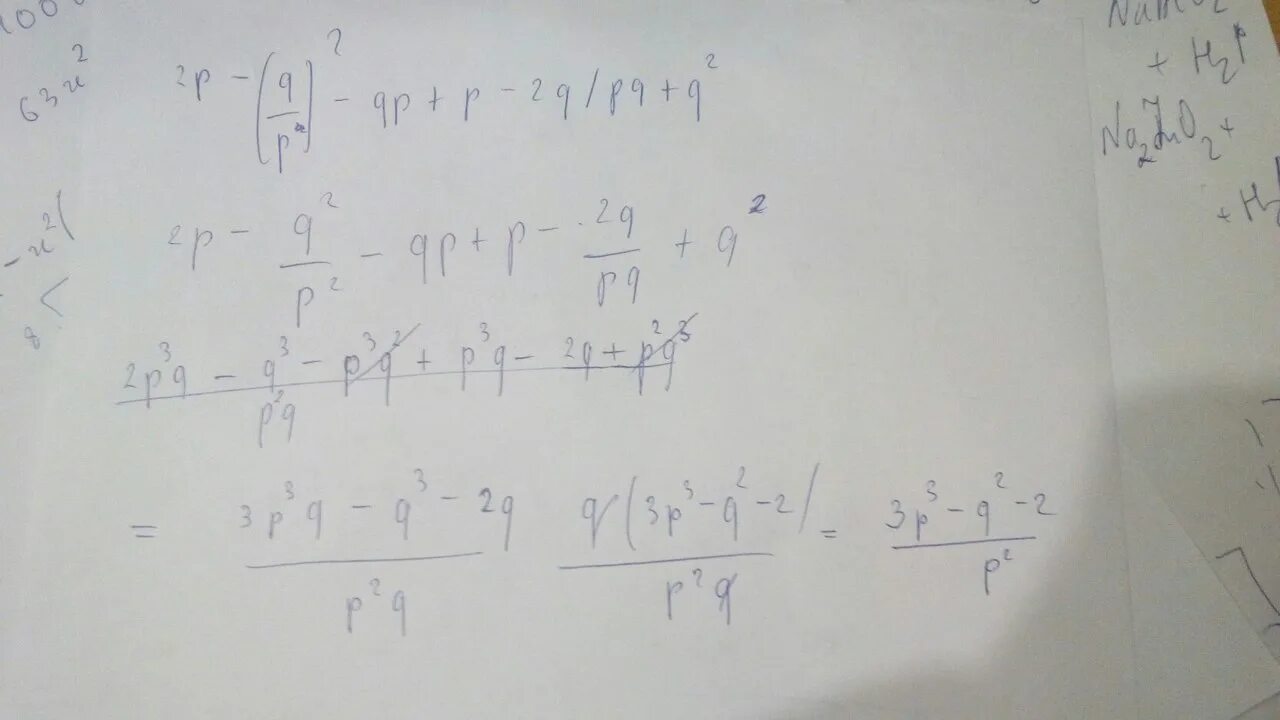 100
63x²
2p - (q/p)² - qp + p - 2q/pq + q²
- x²(
2p - q²/p² - qp + p - 2q/pq + q²
<
8
2p³q - q³ - p³q² + p³q - 2q + p²q³
p²q
= 3p³q - q³ - 2q / p²q   q(3p³ - q² - 2) / p²q = 3p³ - q² - 2 / p²
+ H₂
Na₂ZnO₂ +
+ H₂